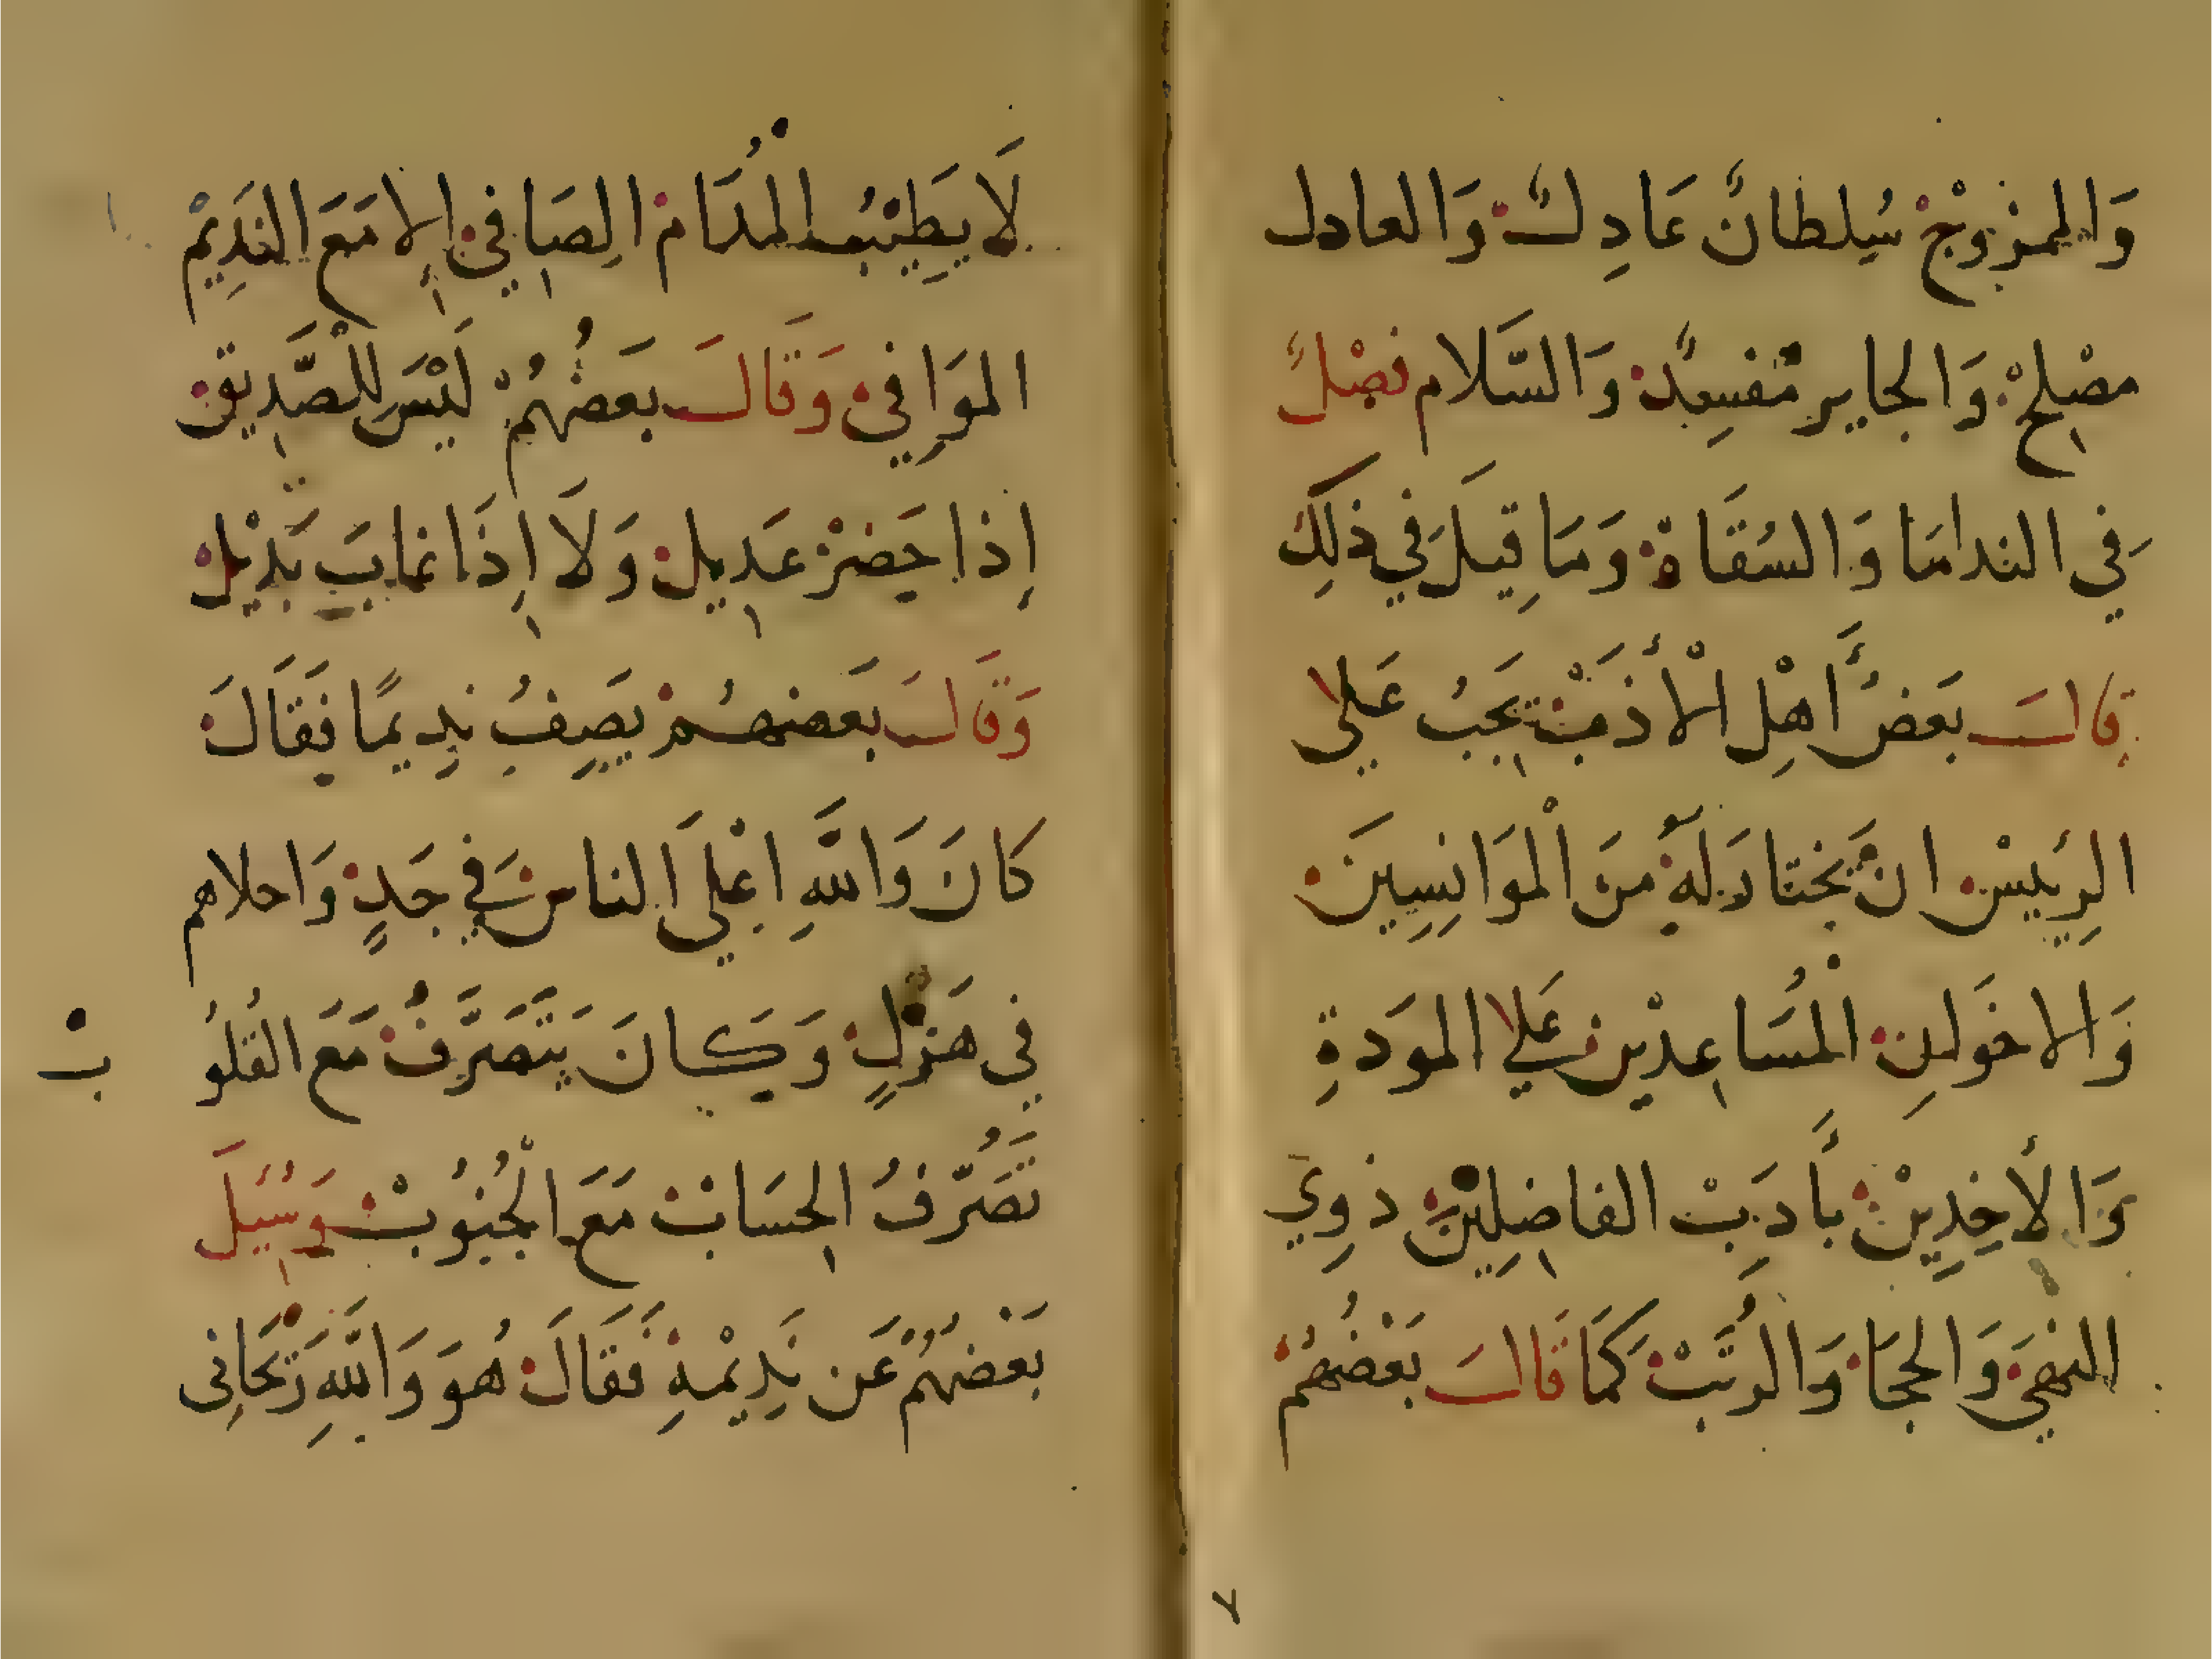 وَالممزوجْ سُلطانٌ عَادِلٌ وَالعادل
مصْلحْ وَالجاير مُفسِدٌ وَالسَّلام فصْلٌ
فِي النداما وَالسُقَاةْ وَمَا قِيلَ في ذلِكَ
قالَ بَعضُ أَهْلِ الْأَدَبْ يَجِبُ عَلي
الرئيسْ انْ يَختادَ لهُ مَنَ الْموَانِسِينَ
وَالاخوَان الْمُسَاعِدْين عَلا المودةِ
وَالأَخِذِينْ بأَدَبْ الفاضِلِينْ ذوِي
النهىَ وَالحِجَا وَالرُتَبْ كَمَا قَالَ بَعْضُهُمْ
٧
لَا يَطِيْبُ الْمُدَامْ الصَافي إلا مَعَ النَدِيْمْ
الموَافي وَقَالَ بَعضُهُمْ لَيْسَ لِلصَّدِيقْ
إذا حَضرْ عَدِيلْ وَلَا إِذَا غابَ بَدْيلْ
وَقَالَ بَعضهُمْ يَصِفُ نَدِيمًا فَقَالَ
كَانَ وَاللَّهِ اعْلَي الناس في جَدٍ وَاحلاهم
في هَزْلٍ وَكَانَ يَتَصَرَّفُ مَعَ القُلُو
بْ
تَصَرُّفُ الحِسَابْ مَعَ الْجُنُوُبْ وَسُئِلَ
بَعْضهُمْ عَن نَدِيْمهِ فَقَالَ هُوَ وَاللَّهِ رَيْحَانِى